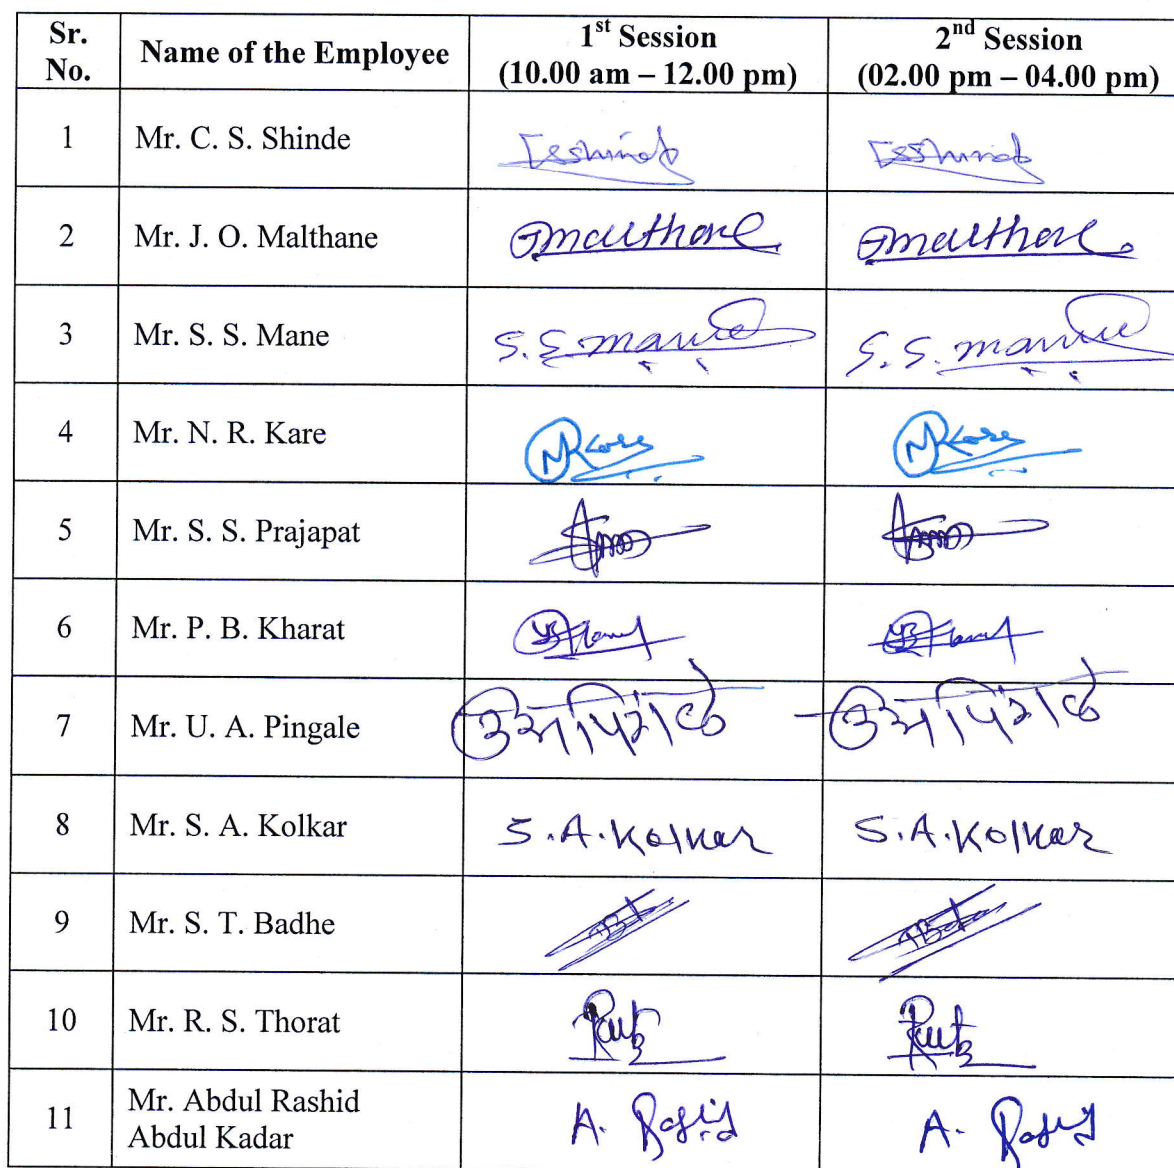 Sr. No. Name of the Employee 1st Session (10.00 am – 12.00 pm) 2nd Session (02.00 pm – 04.00 pm)
1 Mr. C. S. Shinde
2 Mr. J. O. Malthane
3 Mr. S. S. Mane S. S. mane S. S. mane
4 Mr. N. R. Kare NRKare NRKare
5 Mr. S. S. Prajapat
6 Mr. P. B. Kharat
7 Mr. U. A. Pingale
8 Mr. S. A. Kolkar S.A.Kolkar S.A.Kolkar
9 Mr. S. T. Badhe
10 Mr. R. S. Thorat
11 Mr. Abdul Rashid
Abdul Kadar A. Rashid A. Rashid